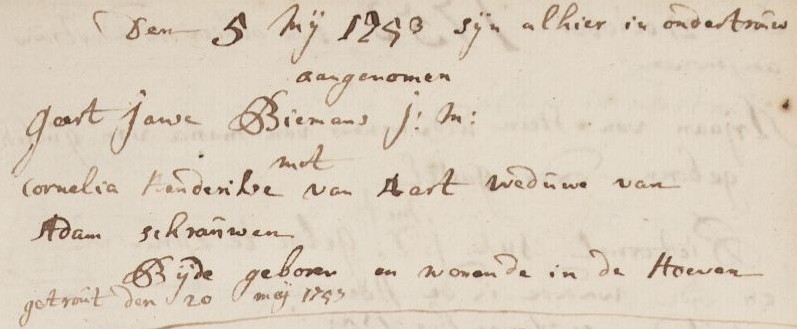 Den 5 Mÿ 1753 sÿn alhier in ondertrouw
aangenomen
Geert Janse Biemans j: m:
met
Cornelia Henderikse van Aart weduwe van
Adam schrauwen
Bÿde geboren en wonende in de Hoeven
getrout den 20 meÿ 1753